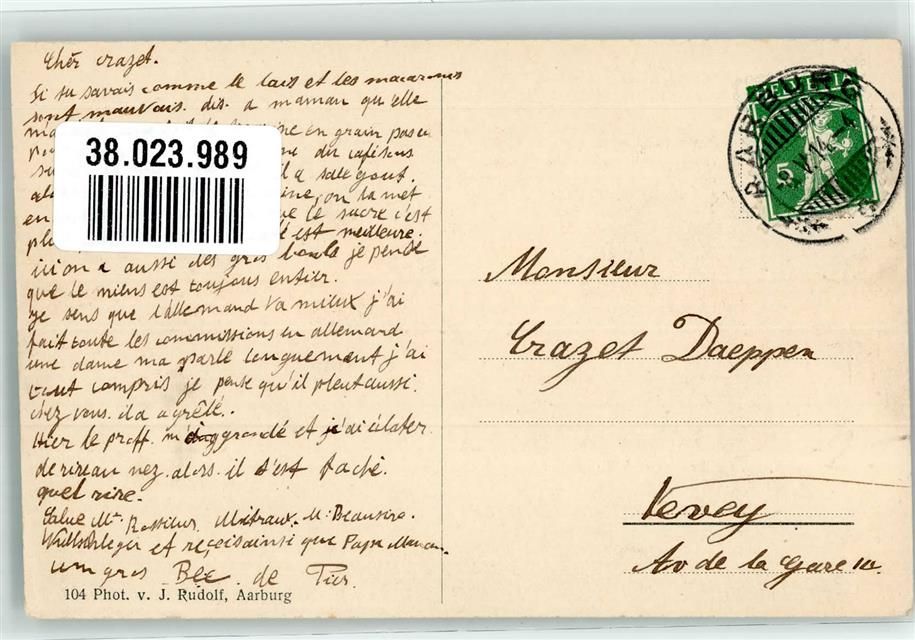 Cher Crazet.
Si tu savais comme le lait et les macaronis
sont mauvais. dis. a maman qu'elle
en grain pas en
38.023.989
il a sale gout.
on la met
en le sucre c'est
est meilleure.
ici on a aussi des gros je pense
que le miens est toujours entier.
je sens que l'allemand va mieux j'ai
fait toute les commissions en allemand
une dame ma parlé longuement j'ai
tout compris je pense qu'il pleut aussi
chez vous. il a a grêlé.
Hier le proff. m'a grondé et j'ai éclater
de rire au nez. alors. il s'est faché.
quel rire.
Salue Mr. Métraux. M. Beausire.
et reçois ainsi que Papa Maman.
un gros Bec. de
104 Phot. v. J. Rudolf, Aarburg
HELVETIA
5
AARBURG
V.14
Monsieur
Crazet Daeppen
Vevey
Av de la Gare